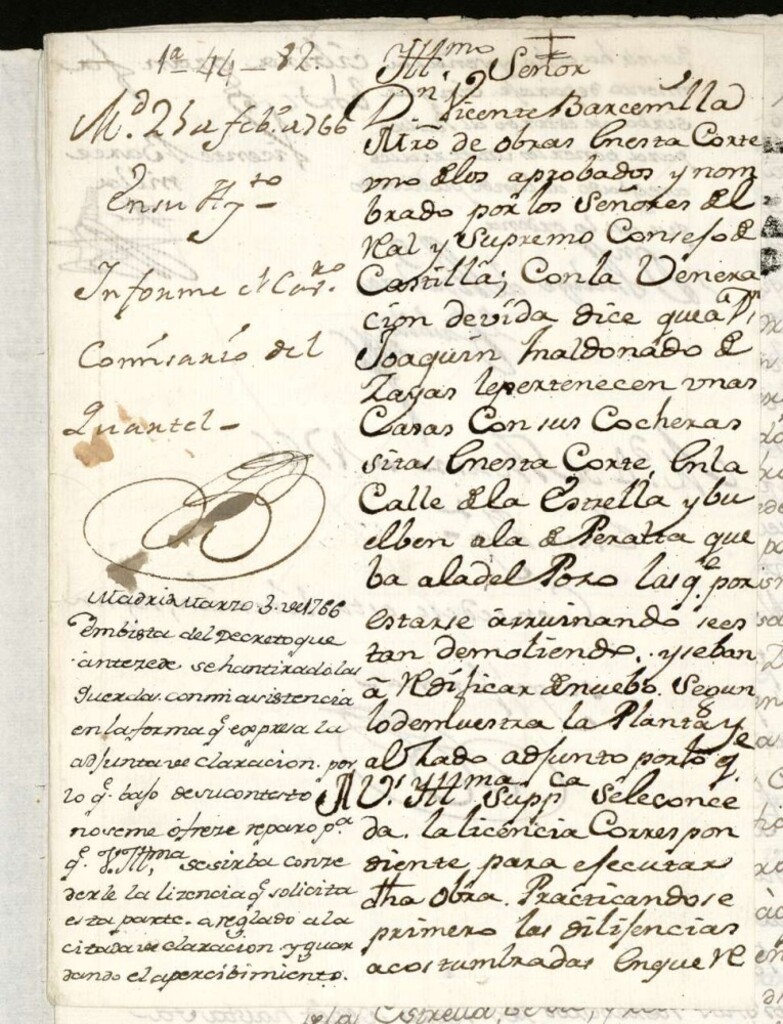 1ª 44-82.
M.d 25 de feb.º de 1766
En su Ay.to
Informe el Cav.ro
Comisario del
Quartel-
Madrid Marzo 3. de 1766
En bista del Decreto que
antezede se han tirado las
Querdas. con mi asistencia
en la forma q.e expresa la
adjunta declaracion. por
lo q.e bajo de su contesto
no se me ofreze reparo p.a
q.e V. Ittma, se sirba conze
derle la lizencia q.e solicita
esta parte. arreglado a la
citada declaracion y guar
dando el apercibimiento.
Ittmo Señor
Dn Vicente Barcenilla
Mro de obras en esta Corte
uno de los aprobados y nom
brado por los Señores del
Real y Supremo Consejo de
Castilla; Con la Venera
cion devida dice que a Dn
Joaquin Maldonado de
Zayas le pertenecen unas
Casas Con sus Cocheras
sitas en esta Corte, en la
Calle de la Estrella y bu
elben a la de Peralta que
ba a la del Pozo las q.e por
estarse arruinando se es
tan demoliendo, y se ban
à Redificar de nuebo. Segun
lo demuestra la Planta y
alzado adjunto por lo q.e
A V.S. Ittma Supp.ca Se le conce
da. la licencia Correspon
diente para efecutar
dha obra. Practicandose
primero las dilijencias
acostumbradas en que Re